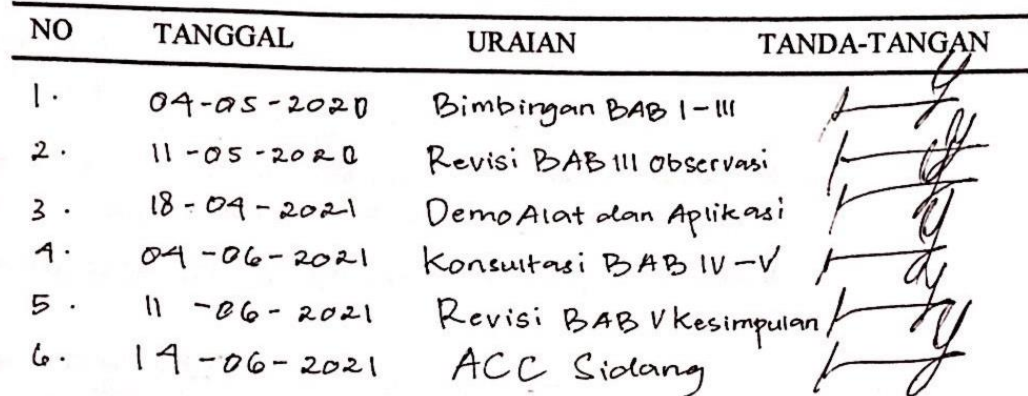 NO TANGGAL URAIAN TANDA-TANGAN
1. 04-05-2020 Bimbingan BAB I-III
2. 11-05-2020 Revisi BAB III Observasi
3. 18-04-2021 Demo Alat dan Aplikasi
4. 04-06-2021 Konsultasi BAB IV-V
5. 11-06-2021 Revisi BAB V Kesimpulan
6. 14-06-2021 ACC Sidang